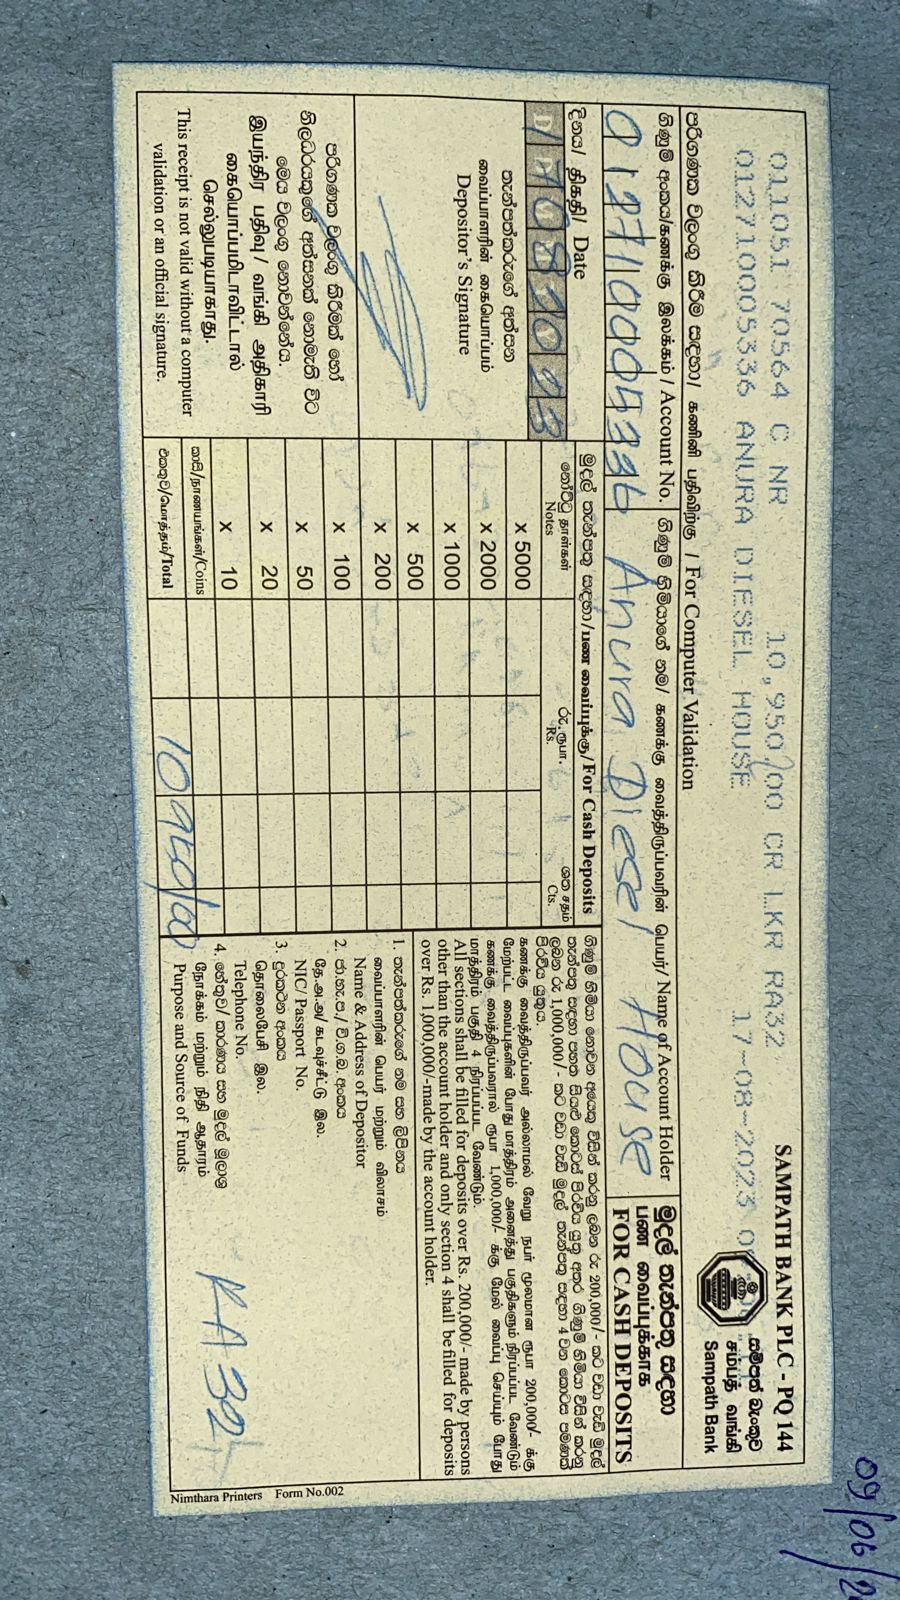 SAMPATH BANK PLC - PQ 144
011051 70564 C NR 10,950/00 CR LKR RA32
0127100005336 ANURA DIESEL HOUSE 17-08-2023
සම්පත් බැංකුව
சம்பத் வங்கி
Sampath Bank
පරිගණක වලංගු කිරීම සඳහා/ கணினி பதிவிற்கு / For Computer Validation
ගිණුම් අංකය/கணக்கு இலக்கம் / Account No.
ගිණුම් හිමියාගේ නම/ கணக்கு வைத்திருப்பவரின் பெயர்/ Name of Account Holder
Anura Diesel House
මුදල් තැන්පතු සඳහා
பண வைப்புக்காக
FOR CASH DEPOSITS
දිනය/ திகதி/ Date
තැන්පත්කරුගේ අත්සන
வைப்பாளரின் கையொப்பம்
Depositor's Signature
පරිගණක වලංගු කිරීමක් හෝ
නිලධරයකුගේ අත්සනක් නොමැති විට
මෙය වලංගු නොවන්නේය.
இயந்திர பதிவு/ வங்கி அதிகாரி
கையொப்பமிடாவிட்டால்
செல்லுபடியாகாது.
This receipt is not valid without a computer
validation or an official signature.
මුදල් තැන්පතු සඳහා/பண வைப்புக்கு/For Cash Deposits
නෝට්ටු தாள்கள் රු. ரூபா. ශත சதம்
Notes Rs. Cts.
x 5000
x 2000
x 1000
x 500
x 200
x 100
x 50
x 20
x 10
කාසි/நாணயங்கள்/Coins
එකතුව/மொத்தம்/Total 10950/00
ගිණුම් හිමියා නොවන අයෙකු විසින් කරනු ලබන රු 200,000/- කට වඩා වැඩි මුදල්
තැන්පතු සඳහා පහත සියළු කොටස් පිරවිය යුතු අතර ගිණුම් හිමියා විසින් කරනු
ලබන රු 1,000,000/- කට වඩා වැඩි මුදල් තැන්පතු සඳහා 4 වන කොටස පමණක්
පිරවිය යුතුය.
கணக்கு வைத்திருப்பவர் அல்லாமல் வேறு நபர் மூலமான ரூபா 200,000/- க்கு
மேற்பட்ட வைப்புகளின் போது மாத்திரம் அனைத்து பகுதிகளும் நிரப்பப்பட வேண்டும்
கணக்கு வைத்திருப்பவரால் ரூபா 1,000,000/- க்கு மேல் வைப்பு செய்யும் போது
மாத்திரம் பகுதி 4 நிரப்பப்பட வேண்டும்.
All sections shall be filled for deposits over Rs. 200,000/- made by persons
other than the account holder and only section 4 shall be filled for deposits
over Rs. 1,000,000/-made by the account holder.
1. තැන්පත්කරුගේ නම සහ ලිපිනය
வைப்பாளரின் பெயர் மற்றும் விலாசம்
Name & Address of Depositor
2. ජා.හැ.ප./ වි.ග.බ. අංකය
தே.அ.அ/ கடவுச்சீட்டு இல.
NIC/ Passport No.
3. දුරකථන අංකය
தொலைபேசி இல.
Telephone No.
4. හේතුව/ කාරණය සහ මුදල් මූලාශ්‍ර
நோக்கம் மற்றும் நிதி ஆதாரம்
Purpose and Source of Funds
RA 32
Nimthara Printers Form No.002
09/06/2